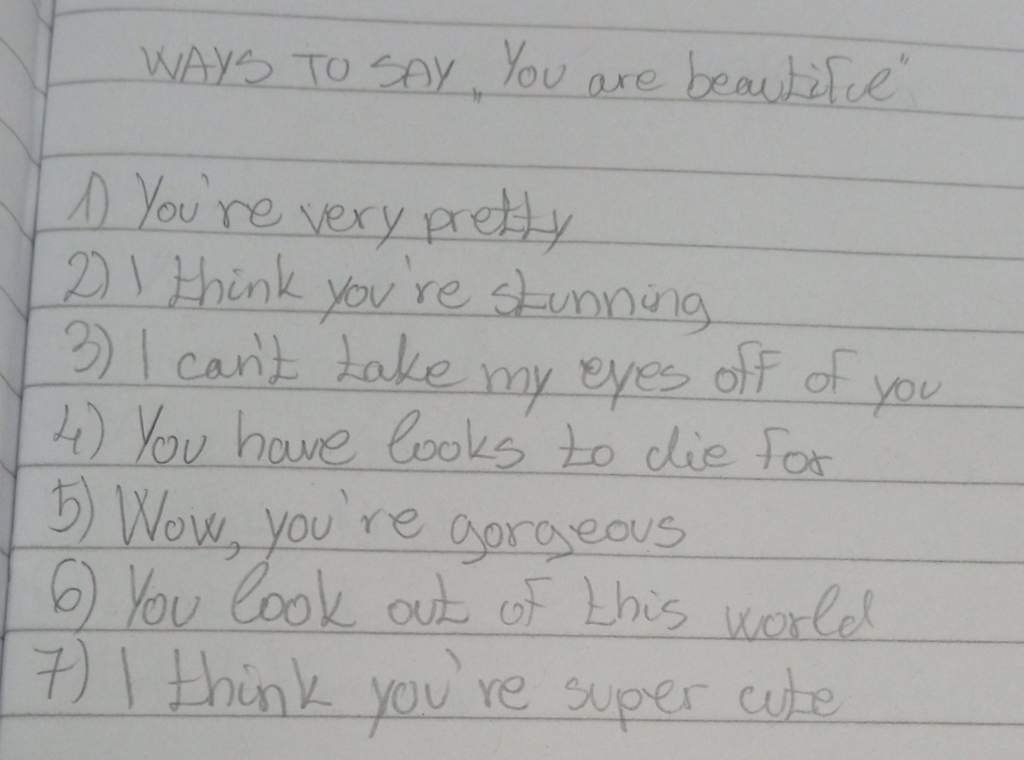 WAYS TO SAY „You are beautiful"
1) You're very pretty
2) I think you're stunning
3) I can't take my eyes off of you
4) You have looks to die for
5) Wow, you're gorgeous
6) You look out of this world
7) I think you're super cute